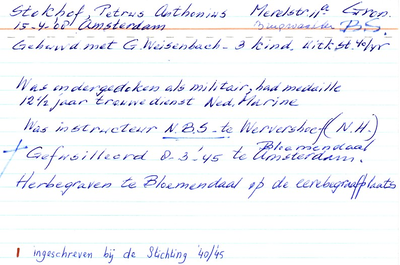 Stokhof, Petrus Anthonius Merelstr 11a Gron.
15-4-00 Amsterdam Burgwaarder B.S.
Gehuwd met G. Weisenbach - 3 kind. Uitk. st. 40/45
Was ondergedoken als militair, had medaille
12½ jaar trouwe dienst Ned. Marine
Was instructeur N.B.S. te Wervershoef (N.H.)
Gefusilleerd 8-3-'45 te Bloemendaal
Amsterdam.
Herbegraven te Bloemendaal op de eerebegraafplaats
ingeschreven bij de Stichting '40/'45